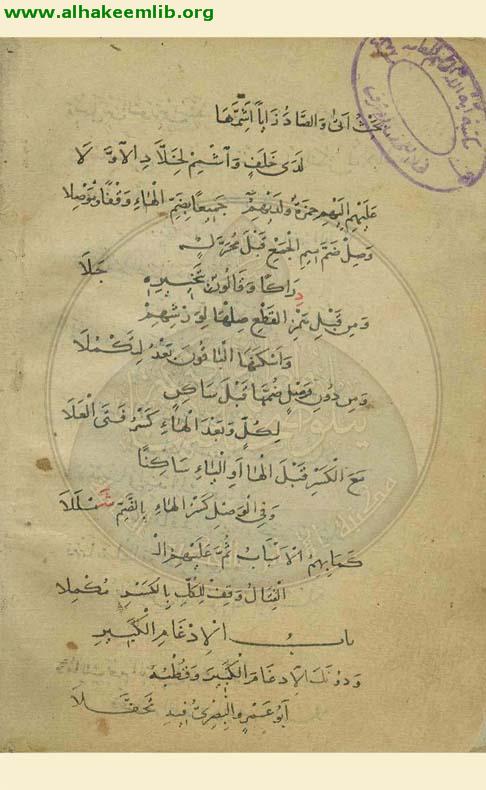 www.alhakeemlib.org
بحَيْثُ أَتَى وَالصَّادُ زَايًا أَشِمَّهَا
لَدَى خَلَفٍ وَاشْمِمْ لِخَلَّادِ الَاوَّلَا
عَلَيْهِم إِلَيْهِم حَمْزَةٌ وَلَدَيْهِمُ جَمِيعًا بِضَمِّ الْهَاءِ وَقْفًا وَمَوْصِلَا
وَصِلْ ضَمَّ مِيمِ الْجَمْعِ قَبْلَ مُحَرَّكٍ
دِرَاكًا وَقَالُونٌ بِتَخْيِيرِهِ جَلَا
وَمِن قَبْلِ هَمْزِ الْقَطْعِ صِلْهَا لِوَرْشِهِمْ
وَاَسْكَنَهَا الْبَاقُونَ بَعْدُ لِتَكْمُلَا
وَمِن دُونِ وَصْلٍ ضُمَّهَا قَبْلَ سَاكِنٍ
لِكُلٍّ وَبَعْدَ الْهَاءِ كَسْرُ فَتَى الْعَلَا
مَعَ الْكَسْرِ قَبْلَ الْهَا أَوِ الْيَاءِ سَاكِنًا
وَفِي الْوَصْلِ كَسْرُ الْهَاءِ بِالضَّمِّ شَمْلَلَا
كَمَا بِهِمُ الْاَسْبَابُ ثُمَّ عَلَيْهِمُ الْـ
قِتَالُ وَقِفْ لِلْكُلِّ بِالْكَسْرِ مُكْمِلَا
بابُ الْاِدْغَامِ الْكَبِيرِ
وَدُونَكَ الْاِدْغَامَ الْكَبِيرَ وَقُطْبُهُ
أَبُو عَمْرٍو الْبَصْرِيُّ فِيهِ تَحَفَّلَا